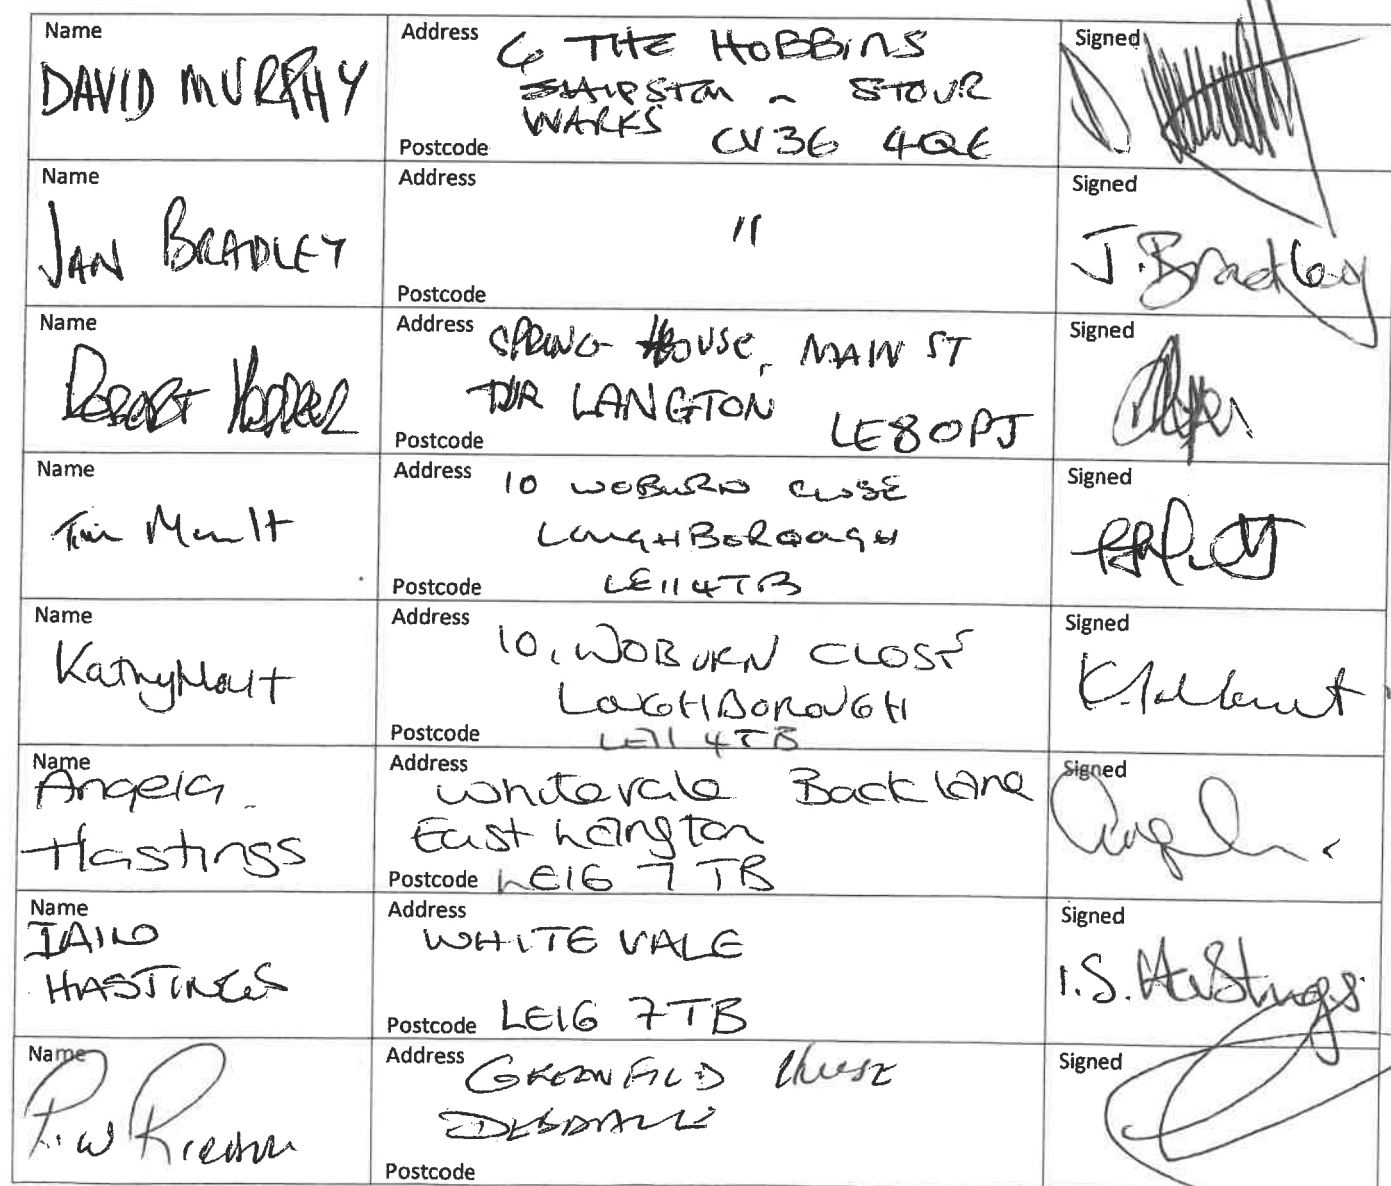 Name
DAVID MURPHY
Address 6 THE HOBBINS
SHIPSTON ~ STOUR
WARKS
Postcode CV36 4QE
Signed
Name
JAN BRADLEY
Address
"
Postcode
Signed
J. Bradley
Name
ROBERT
Address SPRING HOUSE, MAIN ST
TUR LANGTON
Postcode LE8 0PJ
Signed
Name
Tim Moult
Address 10 WOBURN CLOSE
LOUGHBOROUGH
Postcode LE11 4TB
Signed
Name
Kathy Moult
Address 10, WOBURN CLOSE
LOUGHBOROUGH
Postcode LE11 4TB
Signed
Name
Angela
Hastings
Address
Whitevale Back Lane
East Langton
Postcode LE16 7TB
Signed
Name
IAIN
HASTINGS
Address
WHITE VALE
Postcode LE16 7TB
Signed
I.S. Hastings
Name
P. W
Address GREENFIELD HOUSE
Postcode
Signed